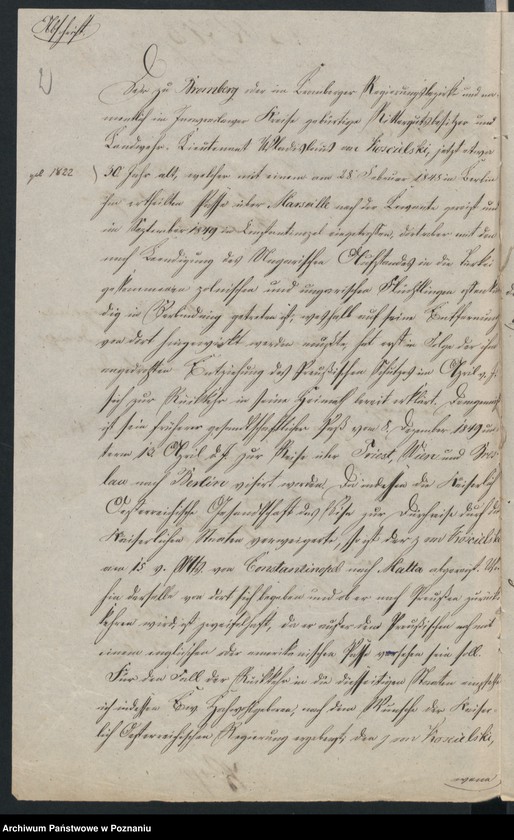 Abschrift.
Der zu Bromberg oder im Bromberger Regierungsbezirk und na-
mentlich im Inowraclawer Kreise gebürtige Rittergutsbesitzer und
Landwehr-Lieutenant Wladislaus von Koscielski, jetzt etwa
geb. 1822
30 Jahr alt, welcher mit einem am 28 Februar 1848 in Berlin
ihm ertheilten Passe über Marseille nach der Levante gereist und
im September 1849 in Constantinopel eingetroffen, daselbst mit den
nach Beendigung des Magyarischen Aufstandes in die Türkei
gekommenen polnischen und ungarischen Flüchtlingen
dig in Verbindung getreten ist, weshalb auf seine Entfernung
von dort hingewirkt werden mußte, hat erst in Folge der ihm
angedrohten Entziehung des Preußischen Schutzes im April v. J.
sich zur Rückkehr in seine Heimath bereit erklärt. Demgemäß
ist sein früherer gesandtschaftlicher Paß vom 8. Dezember 1849 un-
term 12 April d. J. zur Reise über Triest, Wien und Bres-
lau nach Berlin visirt worden. Da indessen die Kaiserlich
Oesterreichische Gesandtschaft das Visa zur Durchreise durch die
Kaiserlichen Staaten verweigerte, so ist der p von Koscielski
am 15 v. Mts. von Constantinopel nach Malta abgereist. Wo-
hin derselbe von dort sich begeben und ob er nach Preußen zurück
kehren wird, ist zweifelhaft, da er außer dem Preußischen noch mit
einem englischen oder amerikanischen Passe versehen sein soll.
Für den Fall der Rückkehr in die diesseitigen Staaten
ich indessen Ew. Hochwohlgeboren, nach dem Wunsche der Kaiser-
lich Oesterreichischen Regierung ergebenst, den p von Koscielski,
wenn
Archiwum Państwowe w Poznaniu